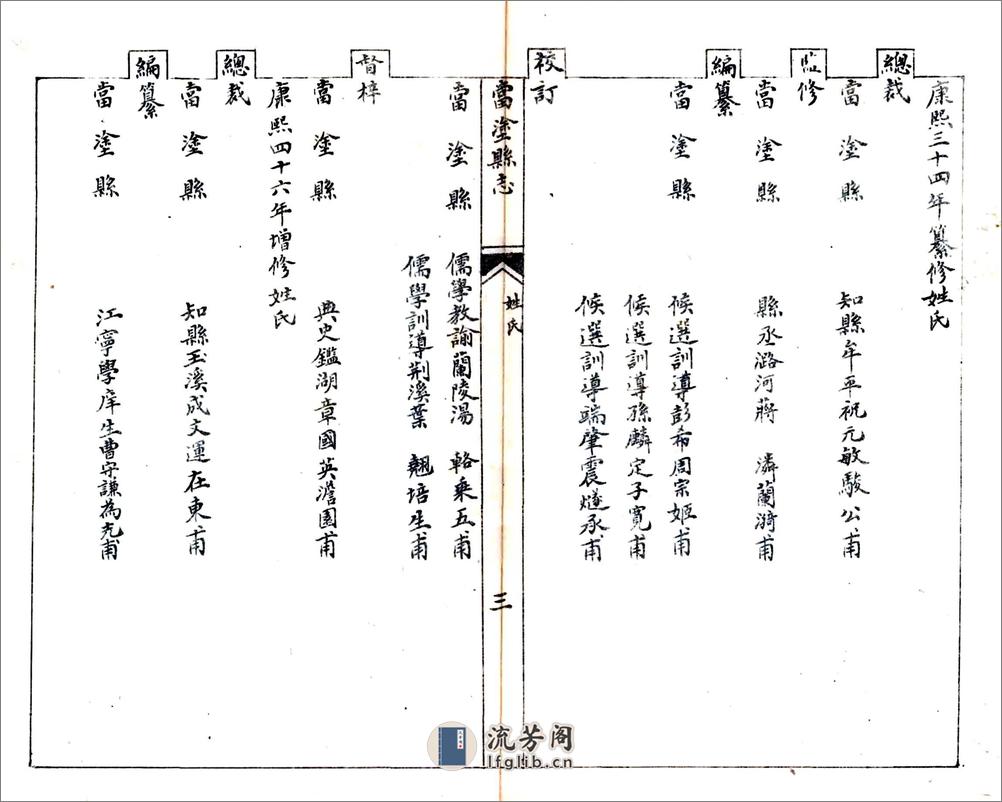 康熙三十四年纂修姓氏
總裁
當塗縣 知縣牟平祝元敏駿公甫
監修
當塗縣 縣丞潞河蔣 潾蘭漪甫
編纂
當塗縣 候選訓導彭希周宗姬甫
候選訓導孫麟定子寬甫
候選訓導端肇震燧承甫
校訂
當塗縣志 姓氏 三
當塗縣 儒學教諭蘭陵湯 輅乘五甫
儒學訓導荆溪葉 翹培生甫
督梓
當塗縣 典史鑑湖章國英澹園甫
康熙四十六年增修姓氏
總裁
當塗縣 知縣玉溪成文運在東甫
編纂
當塗縣 江寧學庠生曹守謙為光甫
流芳阁
lfglib.cn